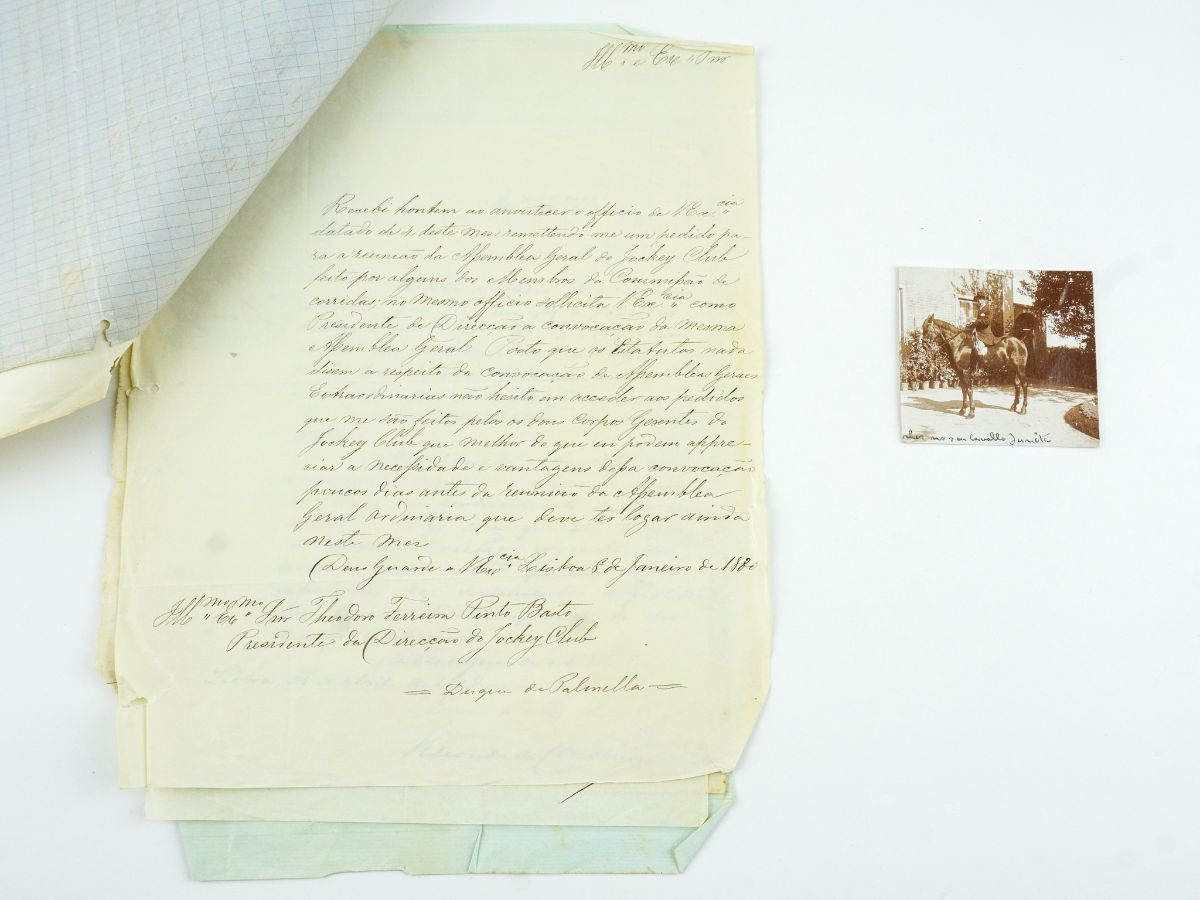 Ill.mo e Ex.mo Snr
Recebi hontem ao anoutecer o officio de V Ex.cia
datado de 4 deste mez remettendo me um pedido pa-
ra a reunião da Assemblea Geral do Jockey Club
feito por alguns dos Membros da Commissão de
corridas; no mesmo officio sollicita V Ex.cia como
Presidente de Direcção a convocação da mesma
Assemblea Geral. Posto que os Estatutos nada
disem a respeito da convocação de Assembleas Geraes
Extraordinarias não hesito em acceder aos pedidos
que me são feitos pelos os dous Corpos Gerentes do
Jockey Club que melhor do que eu podem appre-
ciar a necessidade e vantagens dessa convocação
poucos dias antes da reunião da Assemblea
Geral Ordinaria que deve ter logar ainda
neste mez
Deus Guarde a V Ex.cia Lisboa 8 de Janeiro de 1880
Ill.mo Ex.mo Snr Theodoro Ferreira Pinto Basto
Presidente da Direcção do Jockey Club
= Duque de Palmella =
no seu Cavallo